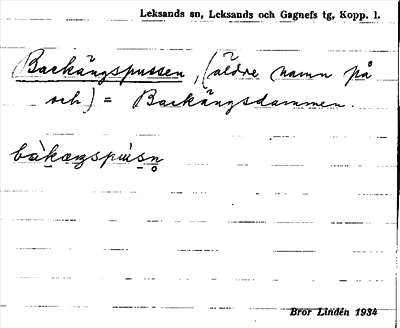 Leksands sn, Leksands och Gagnefs tg, Kopp. l.
Backängspussen, (äldre namn på
och) = Backängsdammen.
bàkæŋspùsn̥
Bror Lindén 1934